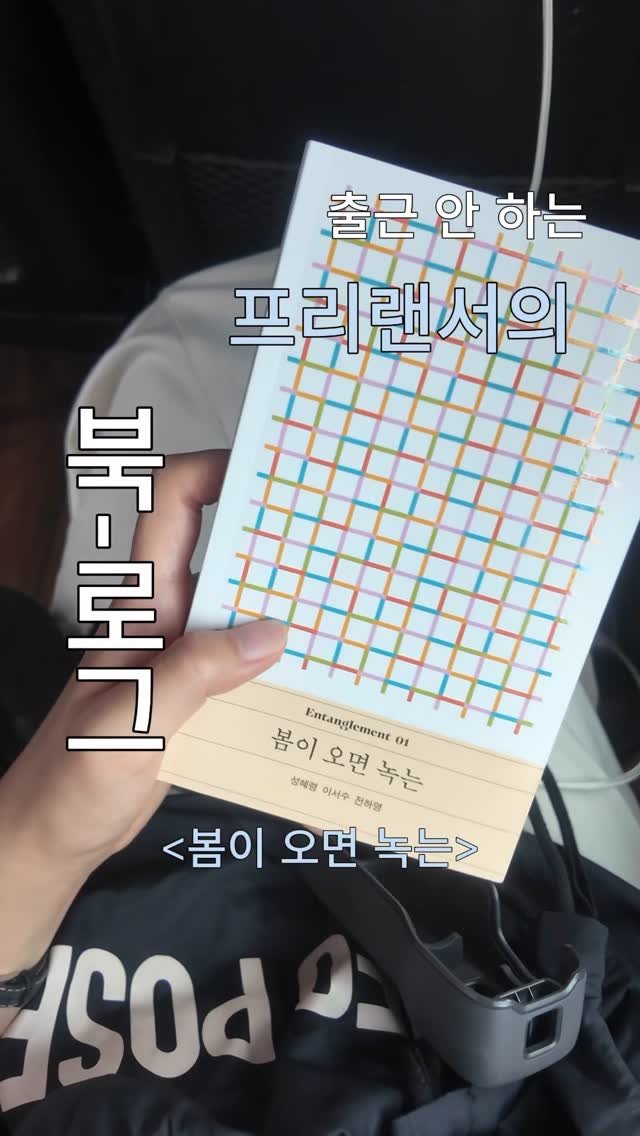 출근 안 하는
프리랜서의
북-로그
Entanglement 01
봄이 오면 녹는
성혜령 이서수 전하영
<봄이 오면 녹는>